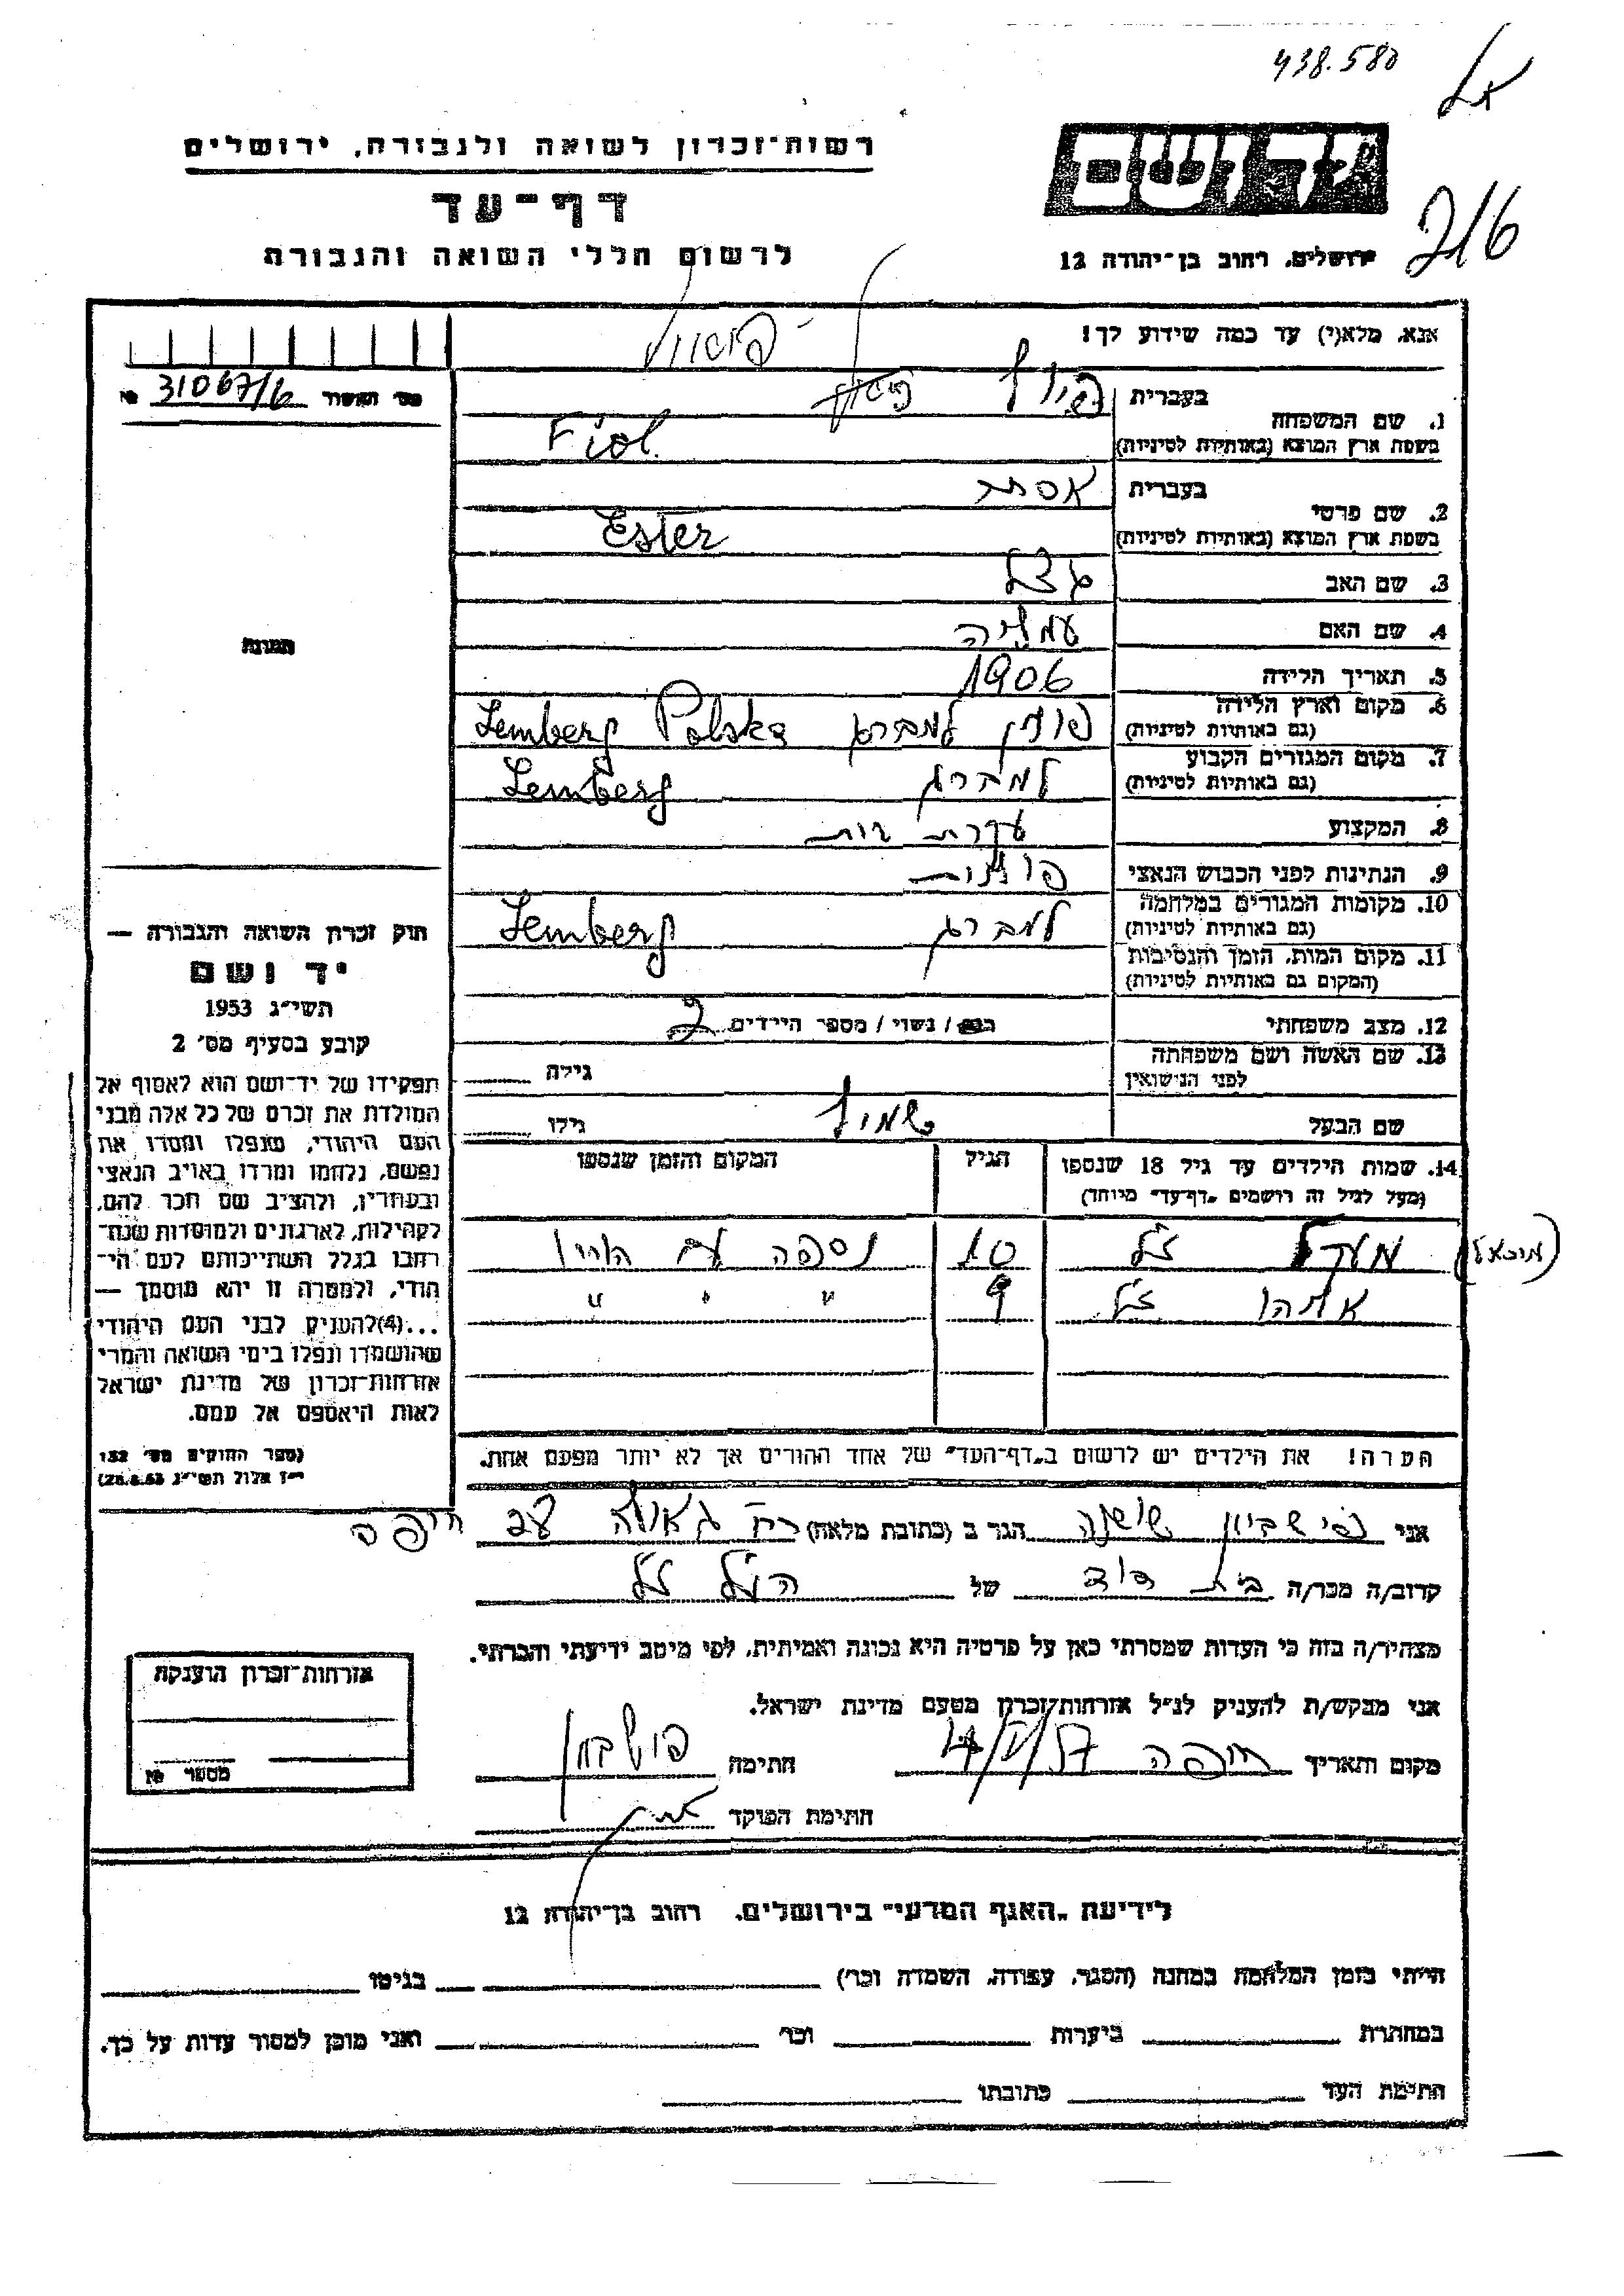 438.580
216
יד ושם
ירושלים, רחוב בן־יהודה 12
רשות־זכרון לשואה ולגבורה, ירושלים
דף־עד
לרשום חללי השואה והגבורה
אנא, מלא(י) עד כמה שידוע לך!
מס' האשור 31067/6 №
תמונה
1. שם המשפחה בעברית
בשפת ארץ המוצא (באותיות לטיניות) Fiol
2. שם פרטי בעברית אסתר
בשפת ארץ המוצא (באותיות לטיניות) Ester
3. שם האב
4. שם האם
5. תאריך הלידה 1906
6. מקום וארץ הלידה (גם באותיות לטיניות) פולין למברג Lemberg Polska
7. מקום המגורים הקבוע (גם באותיות לטיניות) למברג Lemberg
8. המקצוע עקרת בית
9. הנתינות לפני הכבוש הנאצי פולנית
10. מקומות המגורים במלחמה (גם באותיות לטיניות) למברג Lemberg
11. מקום המות, הזמן והנסיבות (המקום גם באותיות לטיניות)
12. מצב משפחתי / נשוי / מספר הילדים 2
13. שם האשה ושם משפחתה לפני הנישואין גילה
שם הבעל שמואל גילו
14. שמות הילדים עד גיל 18 שנספו הגיל המקום והזמן שנספו
(מעל לגיל זה רושמים "דף־עד" מיוחד)
ז"ל 10 נספה עם הוריו (מיכאל)
ז"ל 9 " " "
הערה! את הילדים יש לרשום ב"דף־העד" של אחד ההורים אך לא יותר מפעם אחת.
חוק זכרון השואה והגבורה —
יד ושם
תשי"ג 1953
קובע בסעיף מס' 2
תפקידו של יד־ושם הוא לאסוף אל
המולדת את זכרם של כל אלה מבני
העם היהודי, שנפלו ומסרו את
נפשם, נלחמו ומרדו באויב הנאצי
ובעוזריו, ולהציב שם וזכר להם,
לקהילות, לארגונים ולמוסדות שנח־
רבו בגלל השתייכותם לעם הי־
הודי, ולמטרה זו יהא מוסמך —
...(4)להעניק לבני העם היהודי
שהושמדו ונפלו בימי השואה והמרי
אזרחות־זכרון של מדינת ישראל
לאות היאספם אל עמם.
(ספר החוקים מס' 132
י"ז אלול תשי"ג 28.8.53)
אני שושנה הגר ב (כתובת מלאה) רח' גאולה חיפה
קרוב/ה מכר/ה בת דוד של הנ"ל ז"ל
מצהיר/ה בזה כי העדות שמסרתי כאן על פרטיה היא נכונה ואמיתית, לפי מיטב ידיעתי והכרתי.
אני מבקש/ת להעניק לנ"ל אזרחות־זכרון מטעם מדינת ישראל.
מקום ותאריך חיפה חתימה
חתימת הפוקד
אזרחות־זכרון הוענקה
מספר №
לידיעת "האגף המדעי" בירושלים, רחוב בן־יהודה 12
הייתי בזמן המלחמה במחנה (הסגר, עבודה, השמדה וכו') בגיטו
במחתרת ביערות וכו' ואני מוכן למסור עדות על כך.
חתימת העד כתובתו